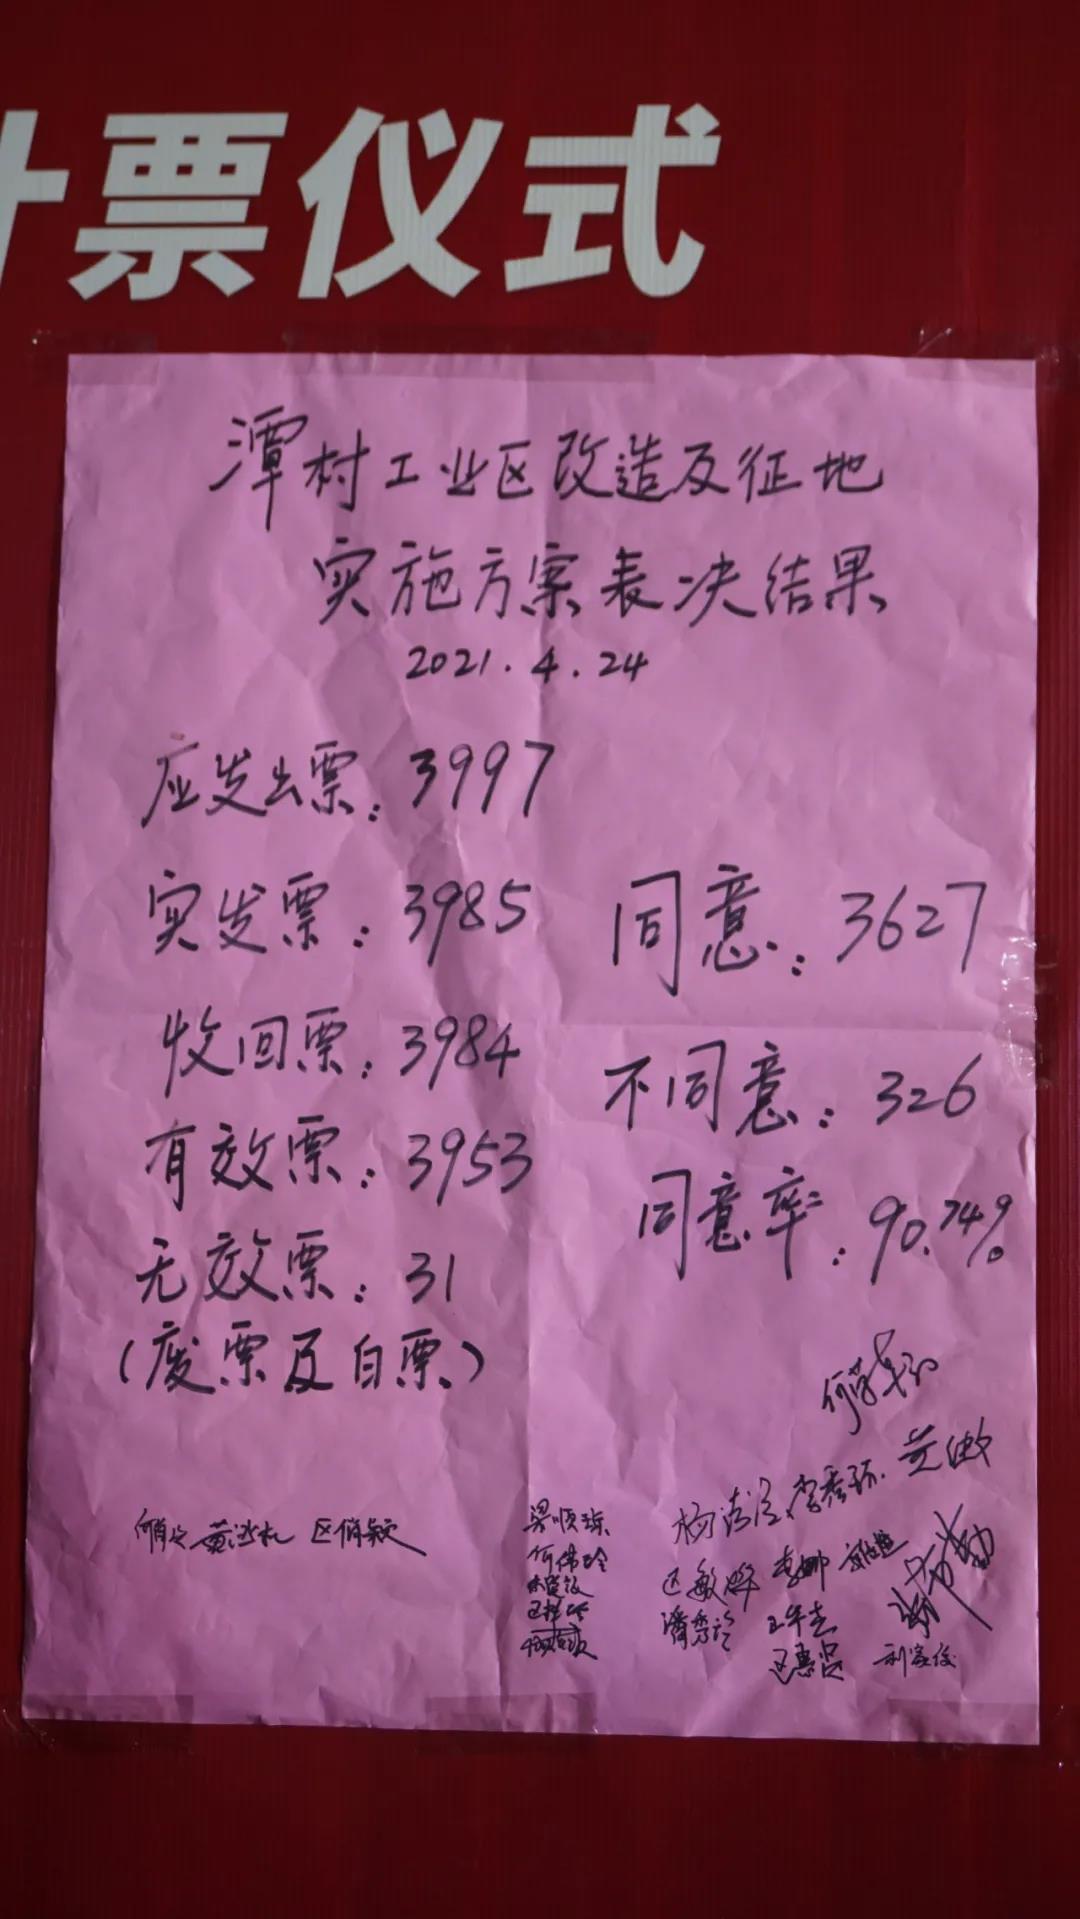 计票仪式
潭村工业区改造及征地
实施方案表决结果
2021.4.24
应发出票：3997
实发票：3985
收回票：3984
有效票：3953
无效票：31
（废票及白票）
同意：3627
不同意：326
同意率：90.74%
李秀环
区俏颖
梁顺琼
何伟玲
区敏婷
李娜
区惠贤
利家俊